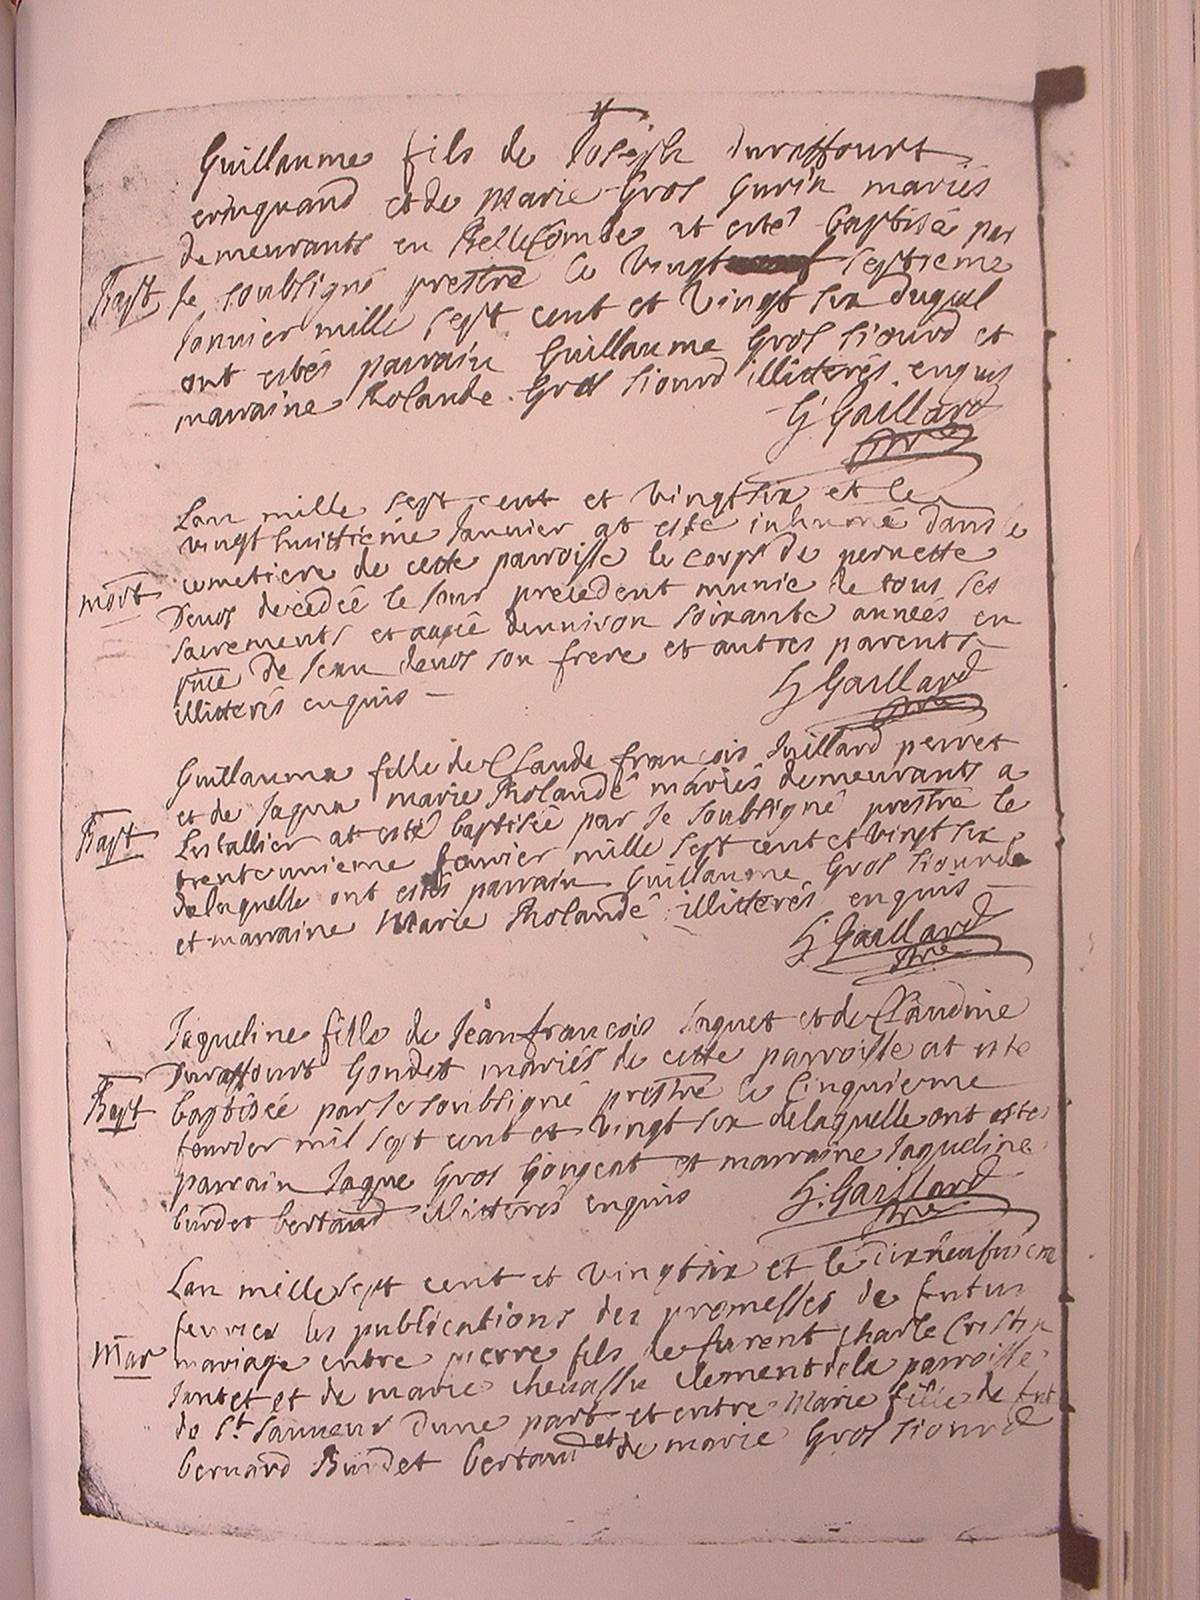 Guillaume fils de Joseph duraffourt
crinquand et de Marie Gros Gurin mariés
demeurants en Bellecombe at esté baptisé par
Bapt Je soubsigné prestre le vingt septieme
Janvier mille sept cent et vingt six duquel
ont estés parrain Guillaume Gros siourd et
marraine Rolande Gros siourd illitterés enquis
G Gaillard
ptre
Lan mille sept cent et vingtsix et le
vingt huittieme Janvier at esté inhumé dans le
cemetiere de cette parroisse le corps de pernette
mort Devos decedeé le Jour precedent munie de tous ses
sacrements et ageé denviron soixante annéés en
pñce de Jean devos son frere et autres parents
illitterés enquis
G Gaillard
ptre
Guillauma fille de Claude françois Juillard perret
et de Jaqua marie Rolandé mariés demeurants a
Bapt Lestallier at esté baptisée par Je soubsigné prestre le
trenteunieme Janvier mille sept cent et vingt six
delaquelle ont estés parrain Guillaume Gros siourd
et marraine Marie Rolandé illitterés enquis
G Gaillard
ptre
Jaqueline fille de Jean françois Jaquet et de Claudine
Duraffourt Gondet mariés de cette parroisse at esté
Bapt baptisée par Je soubsigné prestre le Cinquieme
fevrier mil sept cent et vingt six delaquelle ont estés
parrain Jaque Gros Gougeat et marraine Jaqueline
burdet bertaud illitterés enquis
G. Gaillard
ptre
Lan mille sept cent et vingtsix et le dixneufvieme
fevrier les publications des promesses de futur
Mar mariage entre pierre fils de furent Charle Cristin
Juntet et de marie chevassu clement de la parroisse
de St Sauveur dune part et entre Marie fille de fut
bernard Burdet bertaud et de marie Gros siourd